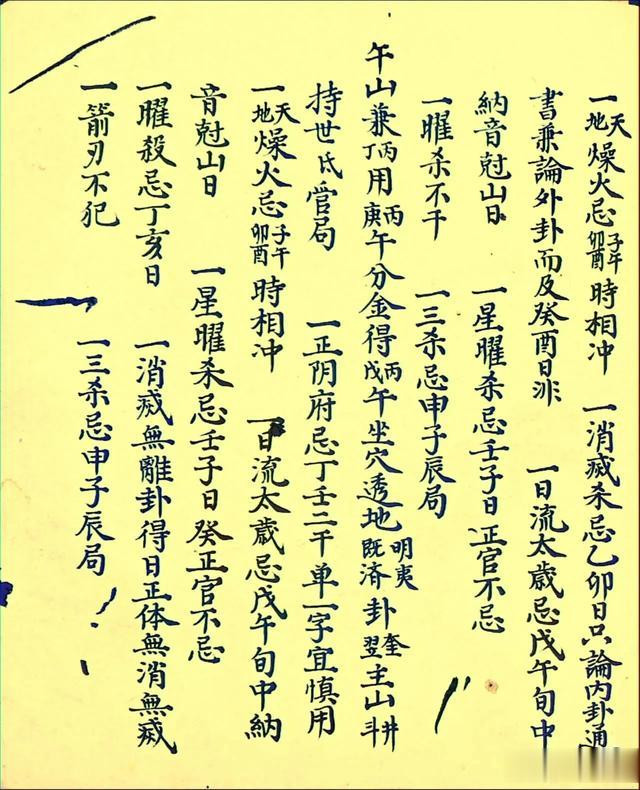 一天地燥火忌子午卯酉時相冲　一消烕杀忌乙卯日只論内卦通
書兼論外卦而及癸酉日非　一日流太歲忌戊午旬中
納音尅山日　一星曜杀忌壬子日正官不忌
一曜杀不干　一三杀忌申子辰局
午山兼丙丁用丙庚午分金得丙戊午坐穴透地明夷既済卦奎翌主山井斗
持世氐官局　一正阴府忌丁壬二干单一字宜慎用
一天地燥火忌子午卯酉時相冲　一日流太歲忌戊午旬中納
音尅山日　一星曜杀忌壬子日癸正官不忌
一曜殺忌丁亥日　一消烕無離卦得日正体無消無烕
一箭刃不犯　一三杀忌申子辰局